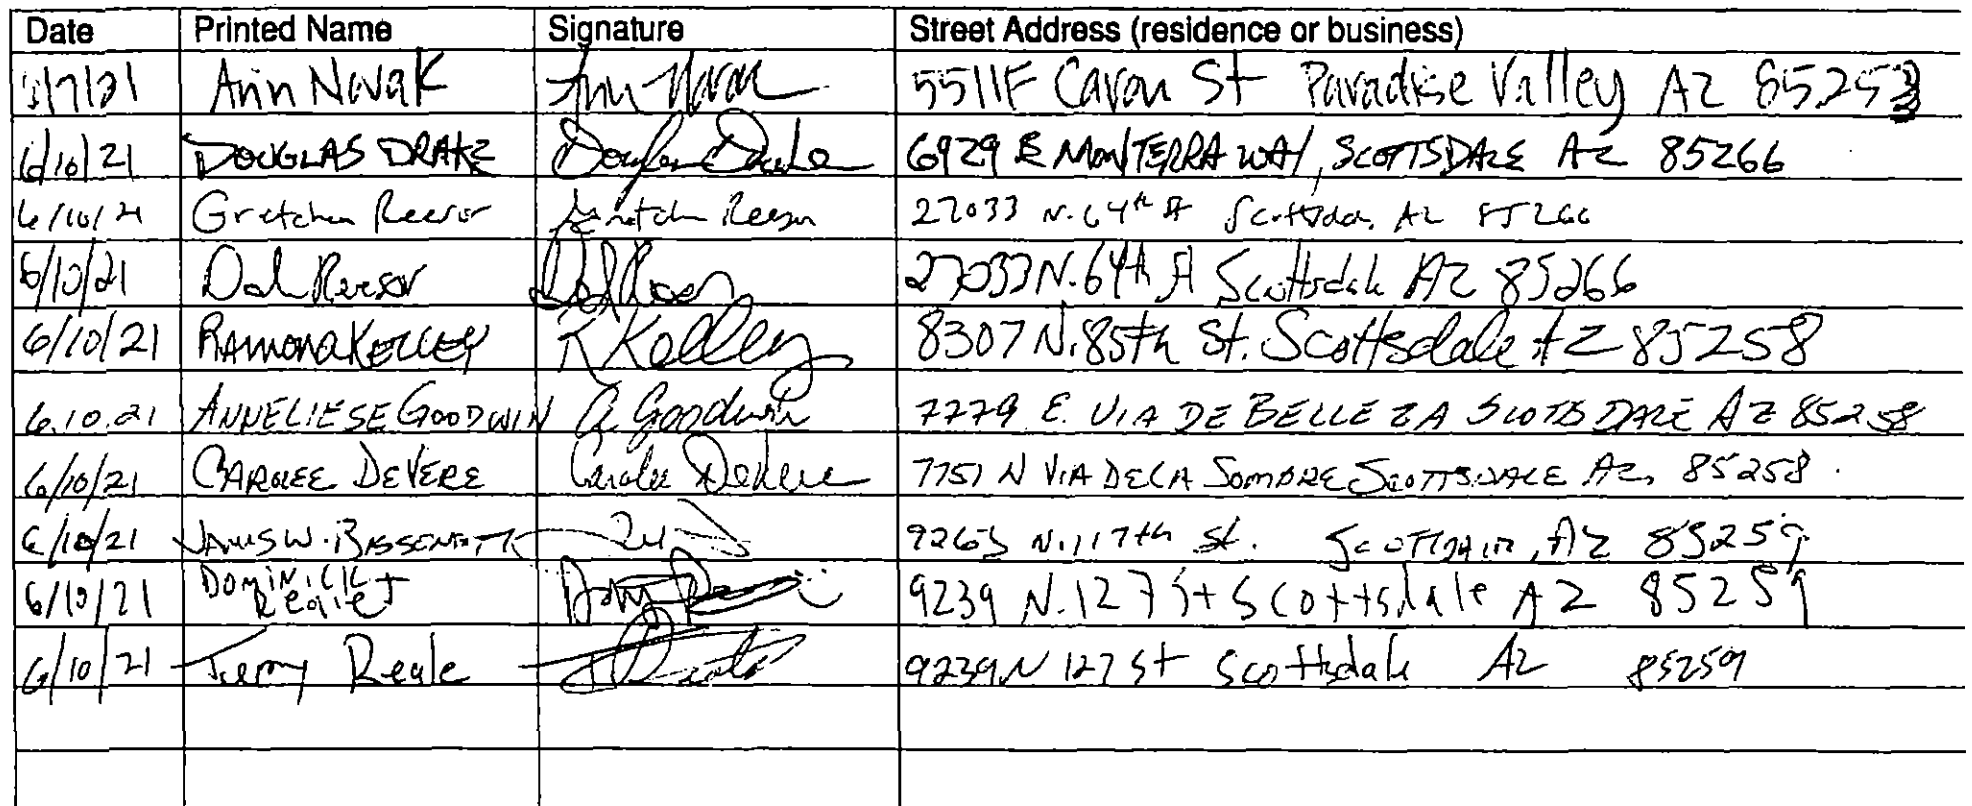 Date Printed Name Signature Street Address (residence or business)
/7/21 Ann Novak Ann Novak 5511 E Caron St Paradise Valley AZ 85253
6/10/21 DOUGLAS DRAKE Douglas Drake 6929 E MONTERRA WAY, SCOTTSDALE AZ 85266
6/10/21 Gretchen Reesor Gretchen Reesor 27033 N. 64th St Scottsdale, AZ 85266
6/10/21 Reesor 27033 N. 64th St Scottsdale AZ 85266
6/10/21 RAMONA KELLEY R Kelley 8307 N. 85th St. Scottsdale AZ 85258
6.10.21 ANNELIESE GOODWIN A. Goodwin 7779 E. VIA DE BELLEZA SCOTTSDALE AZ 85258
6/10/21 CAROLEE DEVERE Carolee DeVere 7751 N VIA DE LA SOMBRE SCOTTSDALE AZ, 85258.
6/10/21 W. 9263 N. 117th St. SCOTTSDALE, AZ 85259
6/10/21 DOMINICK Reale 9239 N. 127 St Scottsdale AZ 85259
6/10/21 Reale 9239 N 127 St Scottsdale AZ 85259